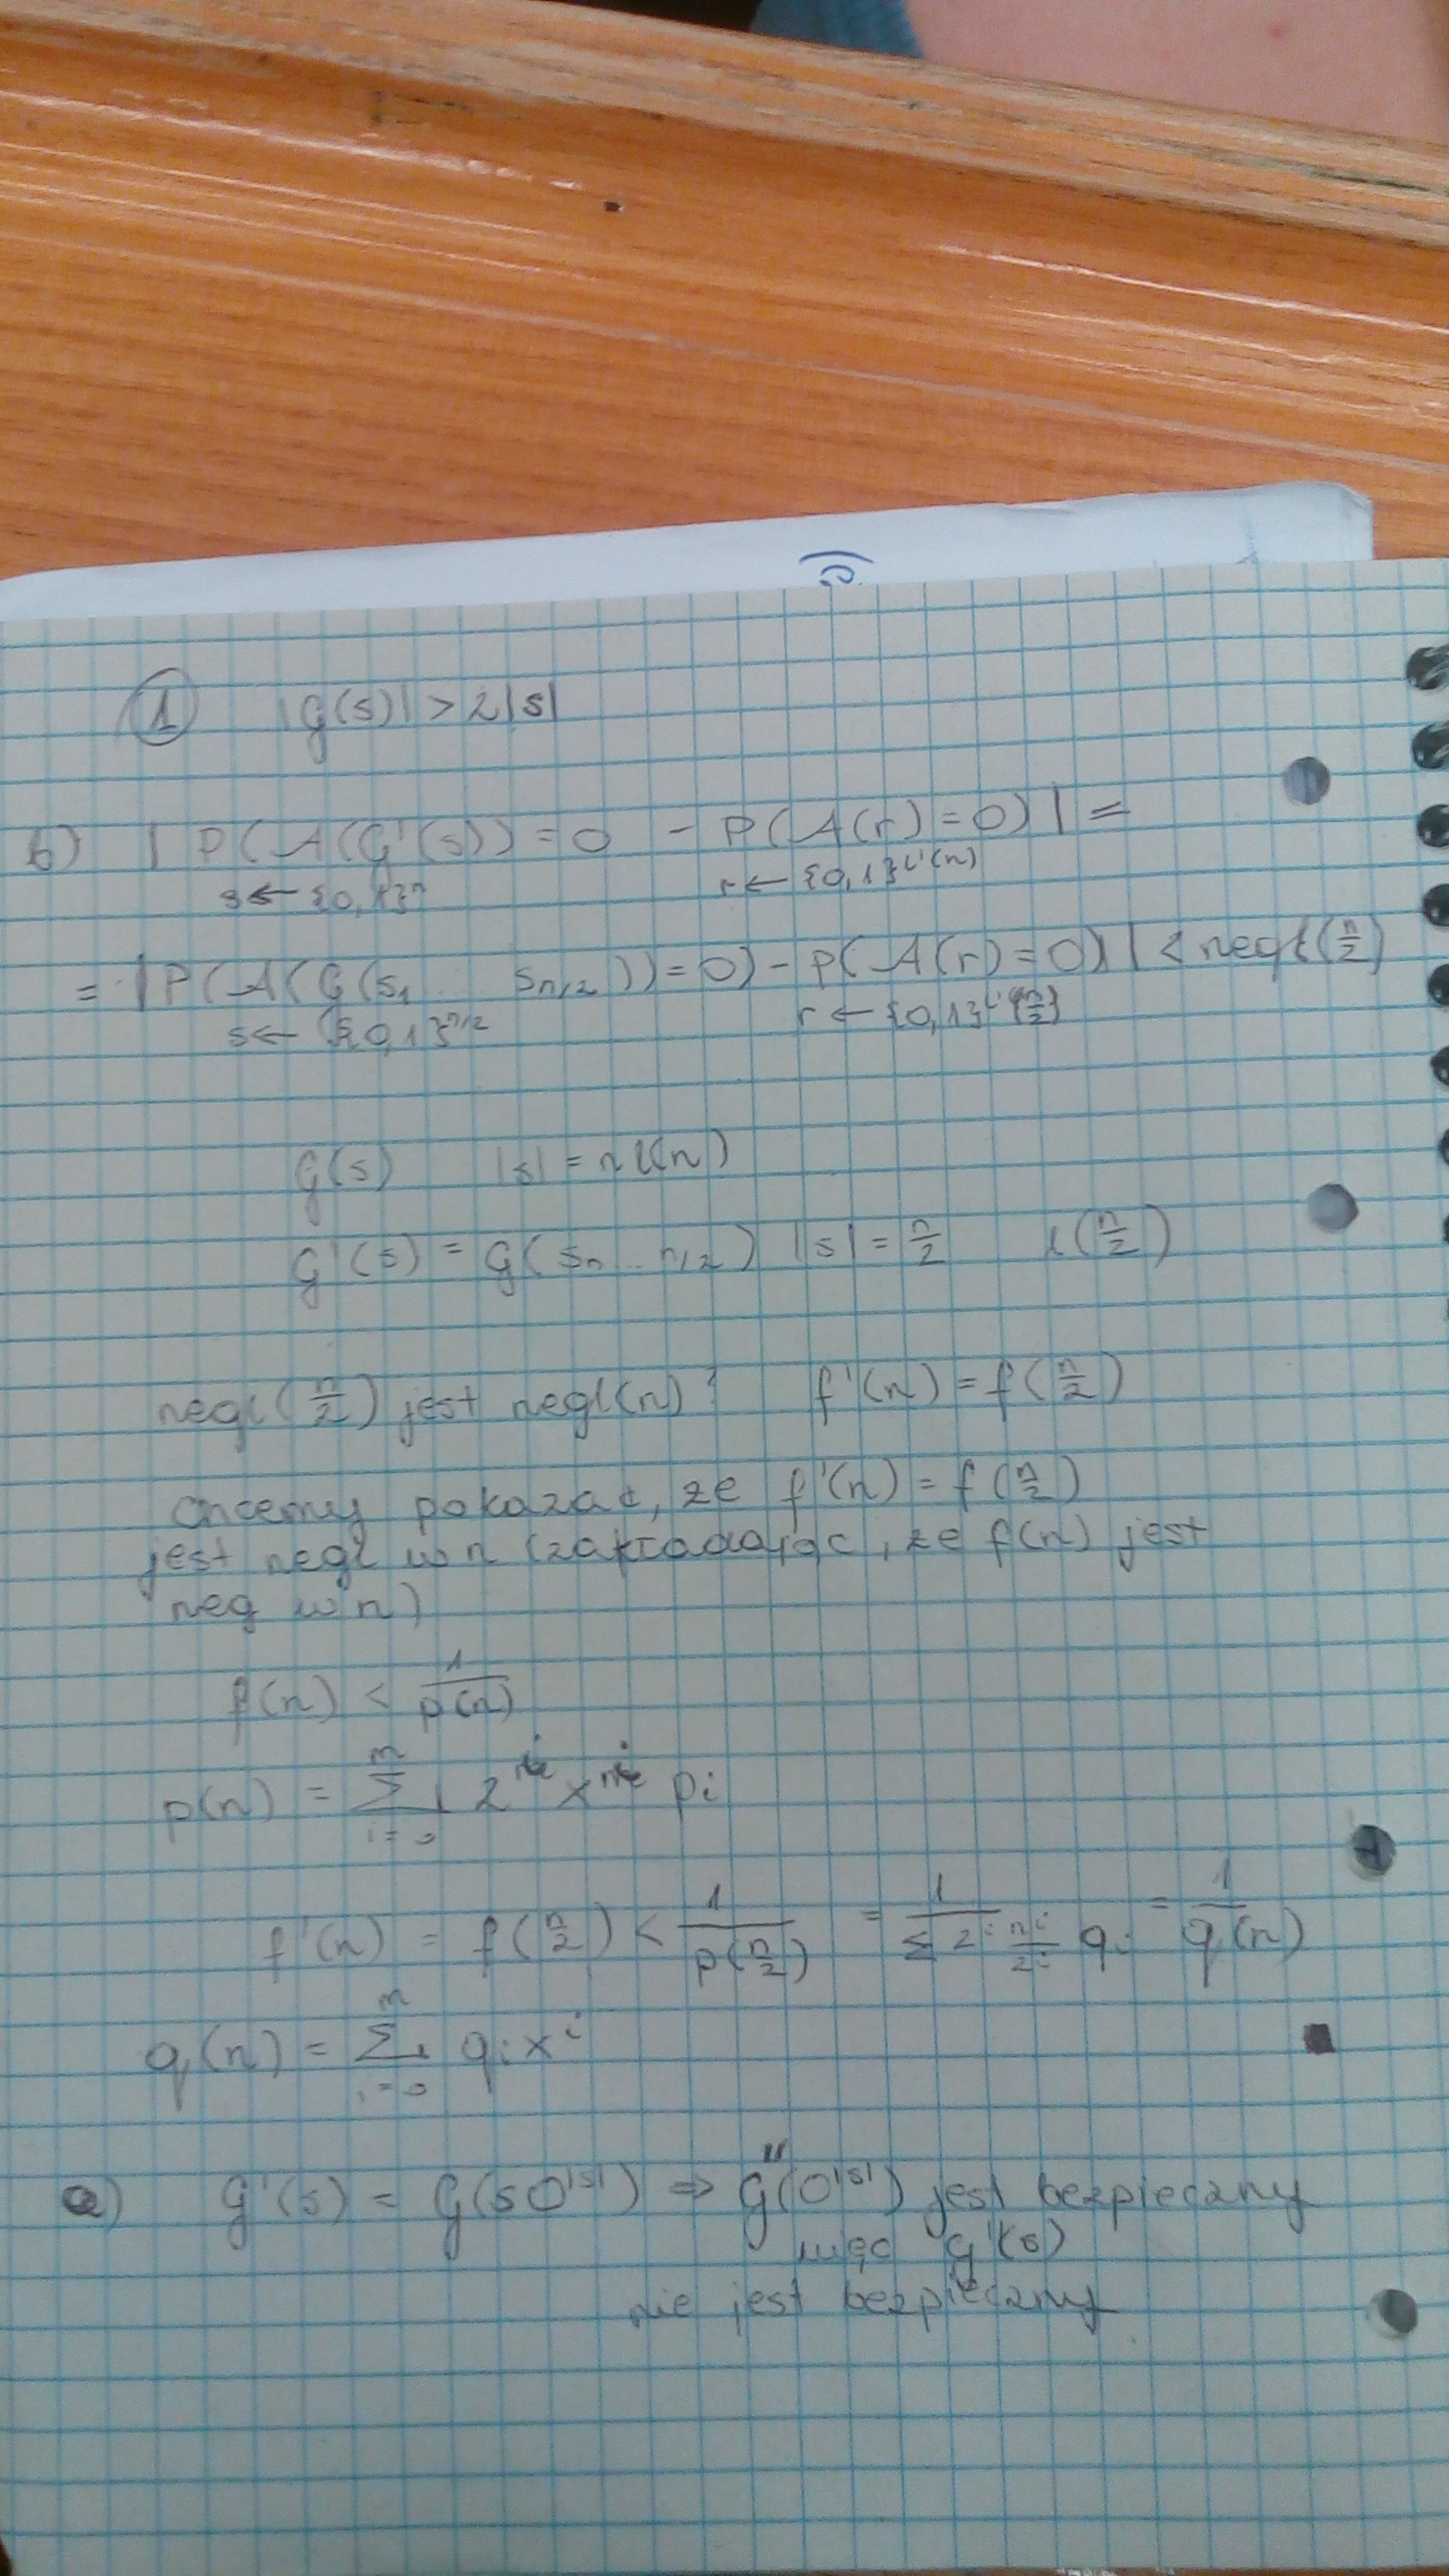 1 |G(s)| > 2|s|
b) | P(A(G'(s)) = 0 - P(A(r) = 0) | =
s ← {0,1}ⁿ r ← {0,1}^l'(n)
= | P(A(G(s₁ ... s_n/2)) = 0) - P(A(r) = 0) | < negl(n/2)
s ← {0,1}^n/2 r ← {0,1}^l'(n/2)
G(s) |s| = n l(n)
G'(s) = G(sn ... n/2) |s| = n/2 l(n/2)
negl(n/2) jest negl(n)? f'(n) = f(n/2)
chcemy pokazać, że f'(n) = f(n/2)
jest negl w n (zakładając, że f(n) jest
neg w n)
f(n) < 1/p(n)
p(n) = Σ_{i=0}^{m} 2^i x^i pi
f'(n) = f(n/2) < 1/p(n/2) = 1/(Σ 2^i n^i/2^i qi) = 1/q(n)
q(n) = Σ_{i=0}^{m} qi x^i
a) G'(s) = G(s0^|s|) ⇒ G''(0^|s|) jest bezpieczny
więc G'(s)
nie jest bezpieczny